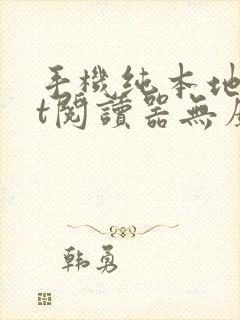 手機純本地
t閱讀器無
韩勇